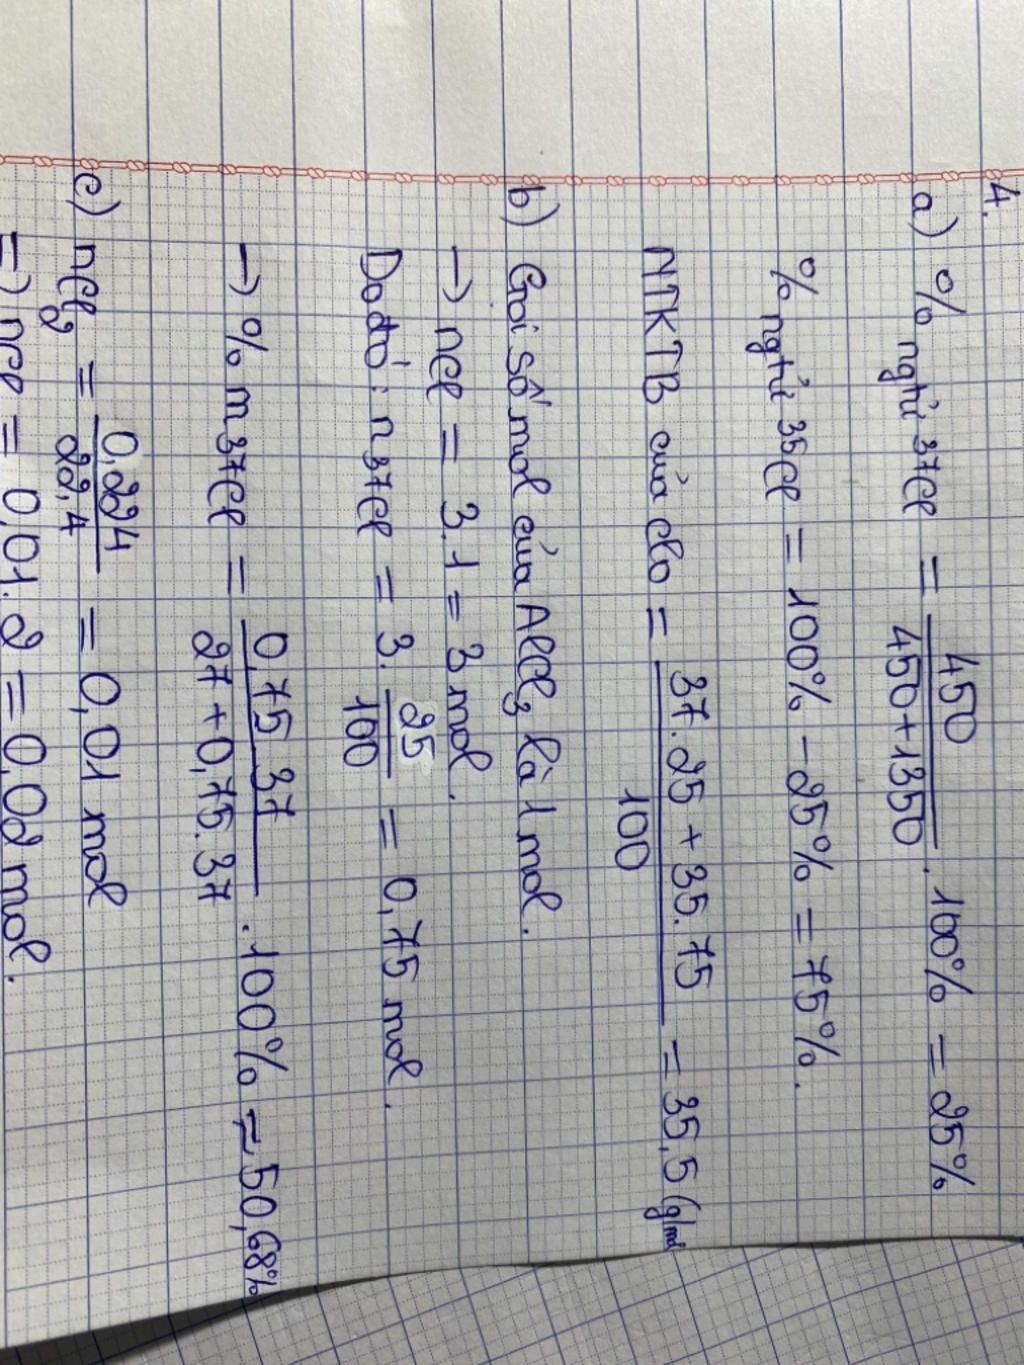 4.
a) % ngtử 37Cl = 450 / (450+1350) . 100% = 25%
% ngtử 35Cl = 100% - 25% = 75%.
NTKTB của clo = (37.25 + 35.75) / 100 = 35,5 (g/mol
b) Gọi số mol của AlCl3 là 1 mol.
→ nCl = 3.1 = 3 mol.
Do đó: n 37Cl = 3. 25/100 = 0,75 mol.
→ % m 37Cl = (0,75.37) / (27+0,75.37) .100% ≈ 50,68%
c) nCl2 = 0,224 / 22,4 = 0,01 mol
=> nCl = 0,01.2 = 0,02 mol.